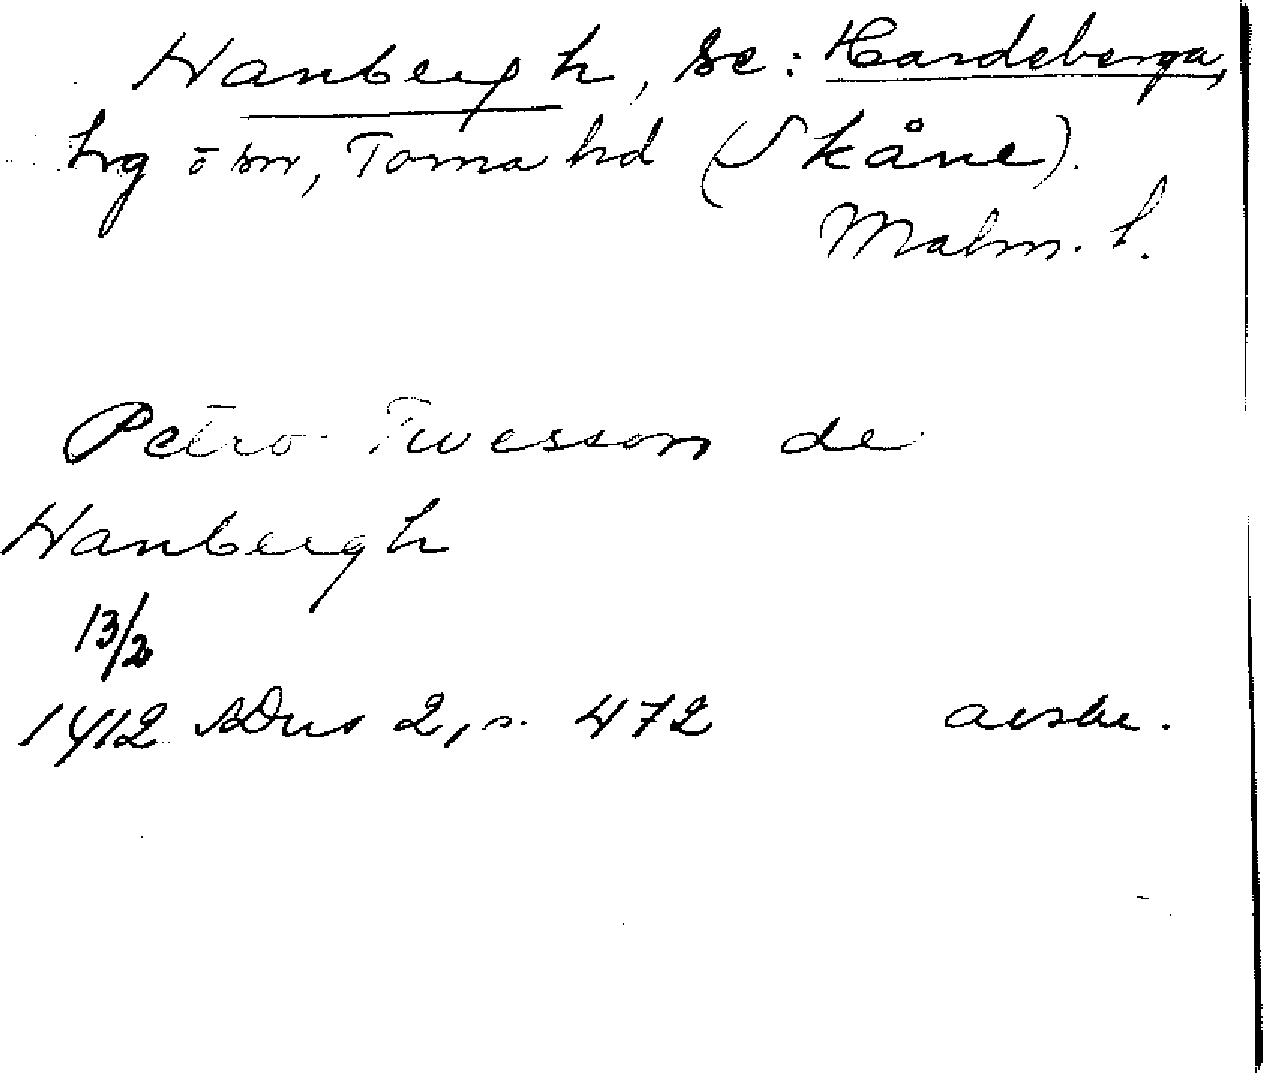 Hanbergh, se: Hardeberga,
hg o sn, Torna hd (Skåne).
Malm. l.
Petro Twesson de
Hanbergh
13/2
1412 SDns 2, s. 472 avskr.